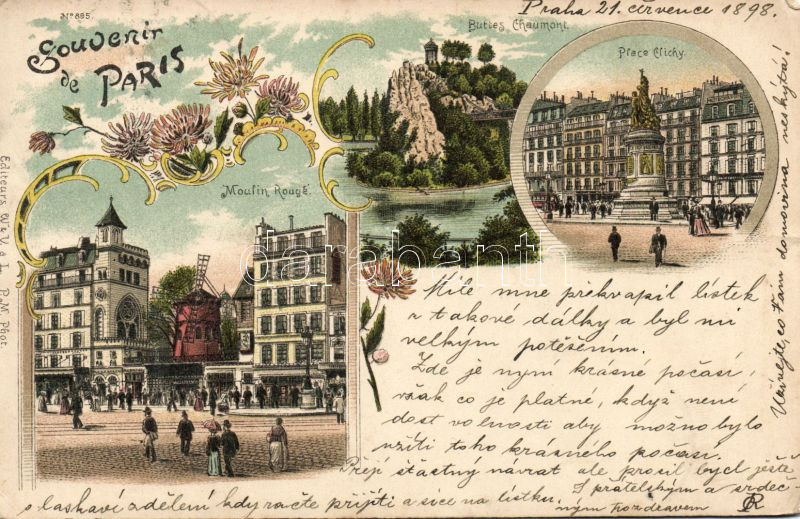 Nº 885.
Souvenir
de PARIS
Buttes Chaumont.
Place Clichy.
Moulin Rouge.
Editeurs W. & V. à L. P. M. Phot.
darabanth
Praha 21. července 1898.
Mile mne překvapil lístek
z takové dálky a byl mi
velkým potěšením.
Zde je nyní krásné počasí,
však co je platné, když není
dost volnosti aby možno bylo
užíti toho krásného počasí.
Přeji šťastný návrat ale prosil bych ještě
o laskavé sdělení kdy račte přijíti a sice na lístku.
S přátelským a srdeč-
ným pozdravem
Užívejte, co Vám domovina neskýtá!